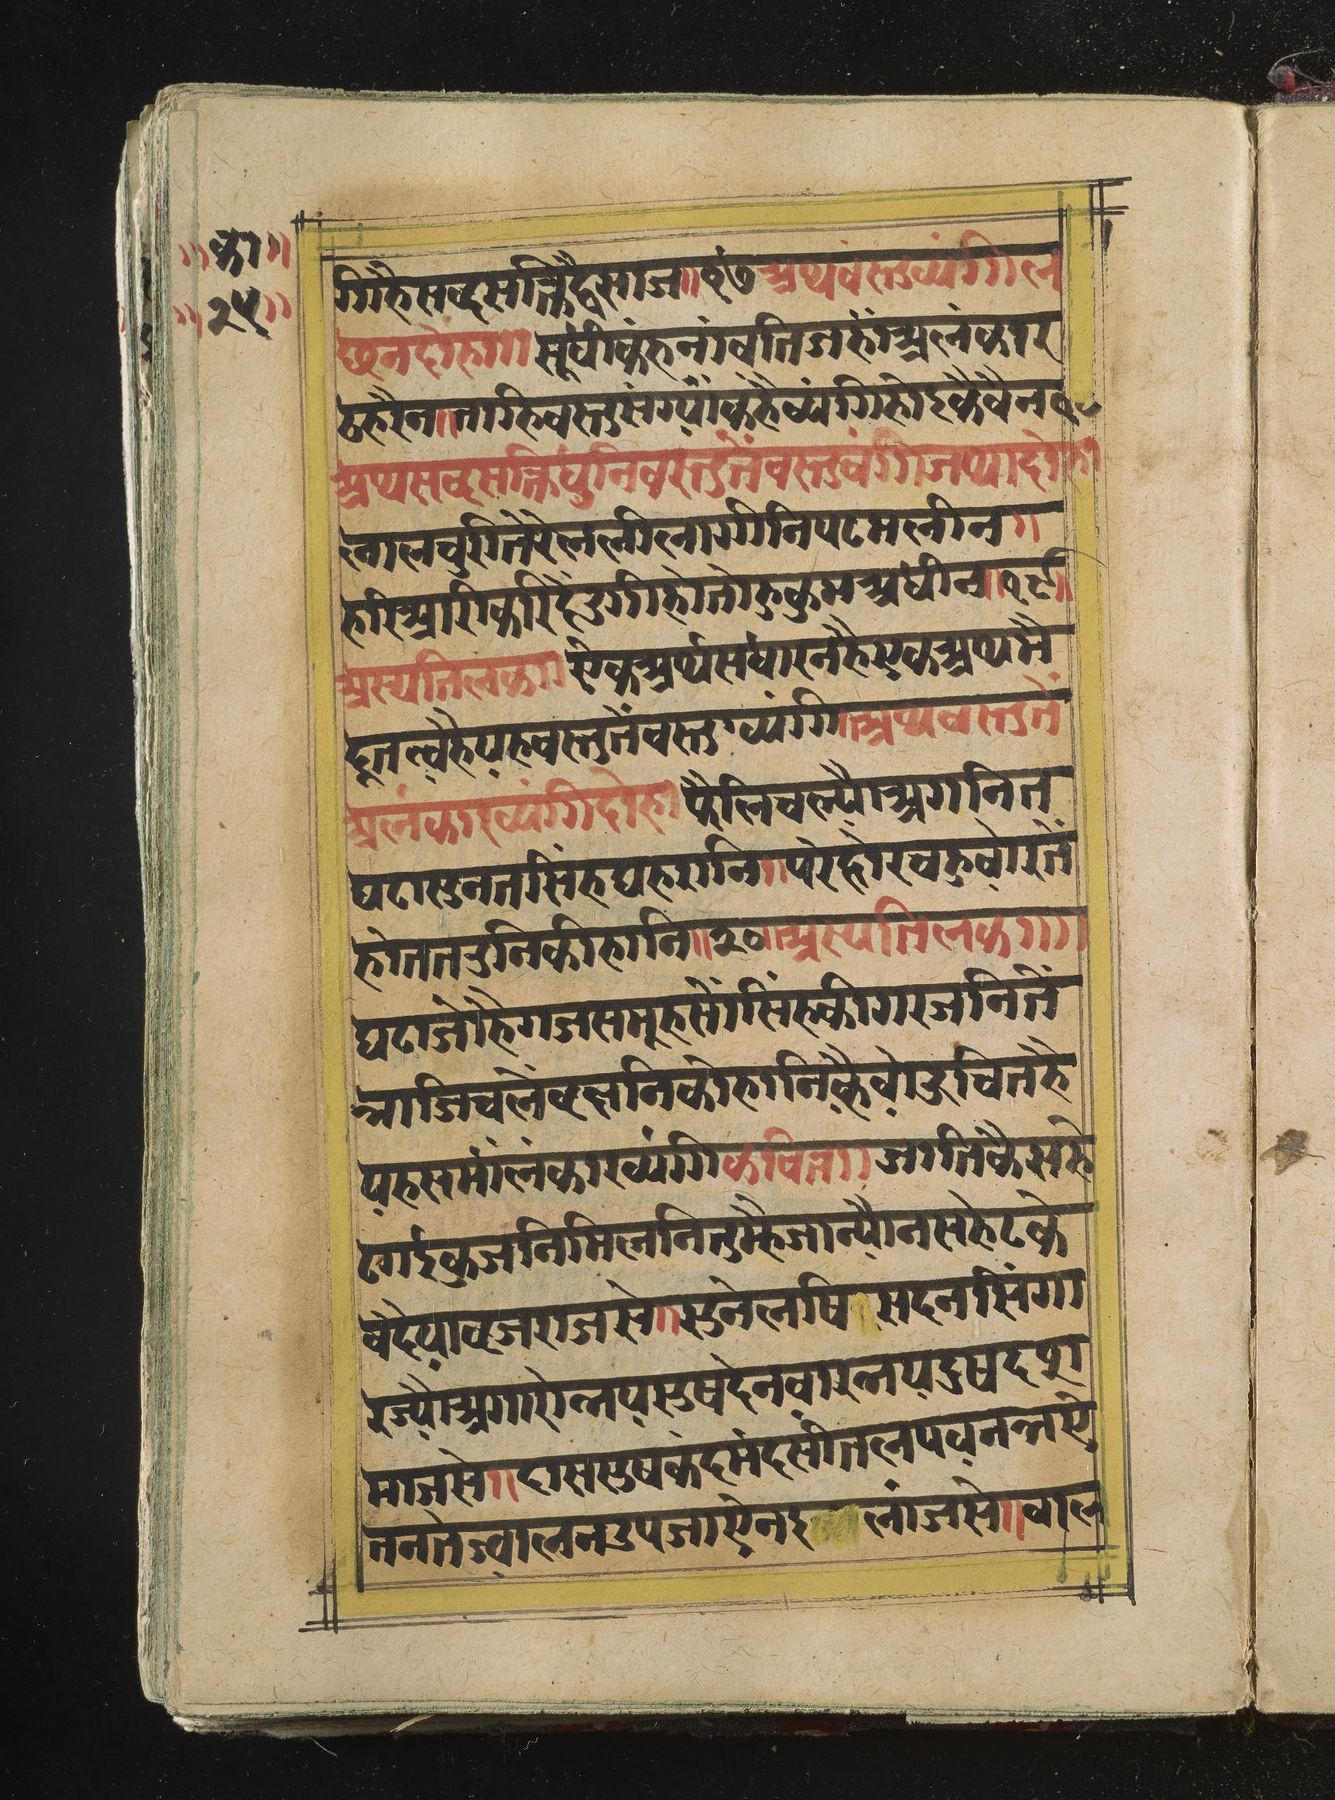 ॥का॥
॥२५॥
गिहैसब्दसक्तिह्वैसाज॥१७अथवस्तुव्यंगिल
छनदोहा॥सूधीकहनावतिजहांअलंकार
ठहरैन॥ताहिवस्तुसंग्याकहैव्यंगिहोइकैबैन१८
अथसब्दसक्तिपुनिवस्तुतेंवस्तुवंगिजथादोहा
लालचुरीतेरैललीलागीनिपटमलीन॥
हरिआरीकरिदेउगीहोतोहुकुमअधीन॥१९॥
अस्यतिलक॥ऐकअर्थसधारनहैएकअथमै
दूतत्वहैयहवस्तुतेंवस्तुव्यंगि॥अथवस्तुतें
अलंकारव्यंगिदोहा॥फैलिचल्यौअगनित
घटासुनतसिंहघहरानि॥परेहोरचहुवोरतें
होततरुनिकीहानि॥२०॥अस्यतिलक॥॥
घटाजोहैगजसमूहसोंसिंहकीगरजनितें
भाजिचलेंब्रछनिकोहानिकैवोउचितहै
यहसमांलंकारव्यंगिकवित्त॥जानिकैसहे
टगईकुजनिमिलनितुम्हैजान्यौनसहेटके
बदैयाब्रजराजसे॥सुनेलषिसदनसिंगा
रज्यौअगारोलयसुषदेनवारेलयदुषदपा
माजसे॥दाससुषकंदमंदसीतलपवनलऐ
तनतेज्वालनउपजाऐनइलाजसे॥वाल